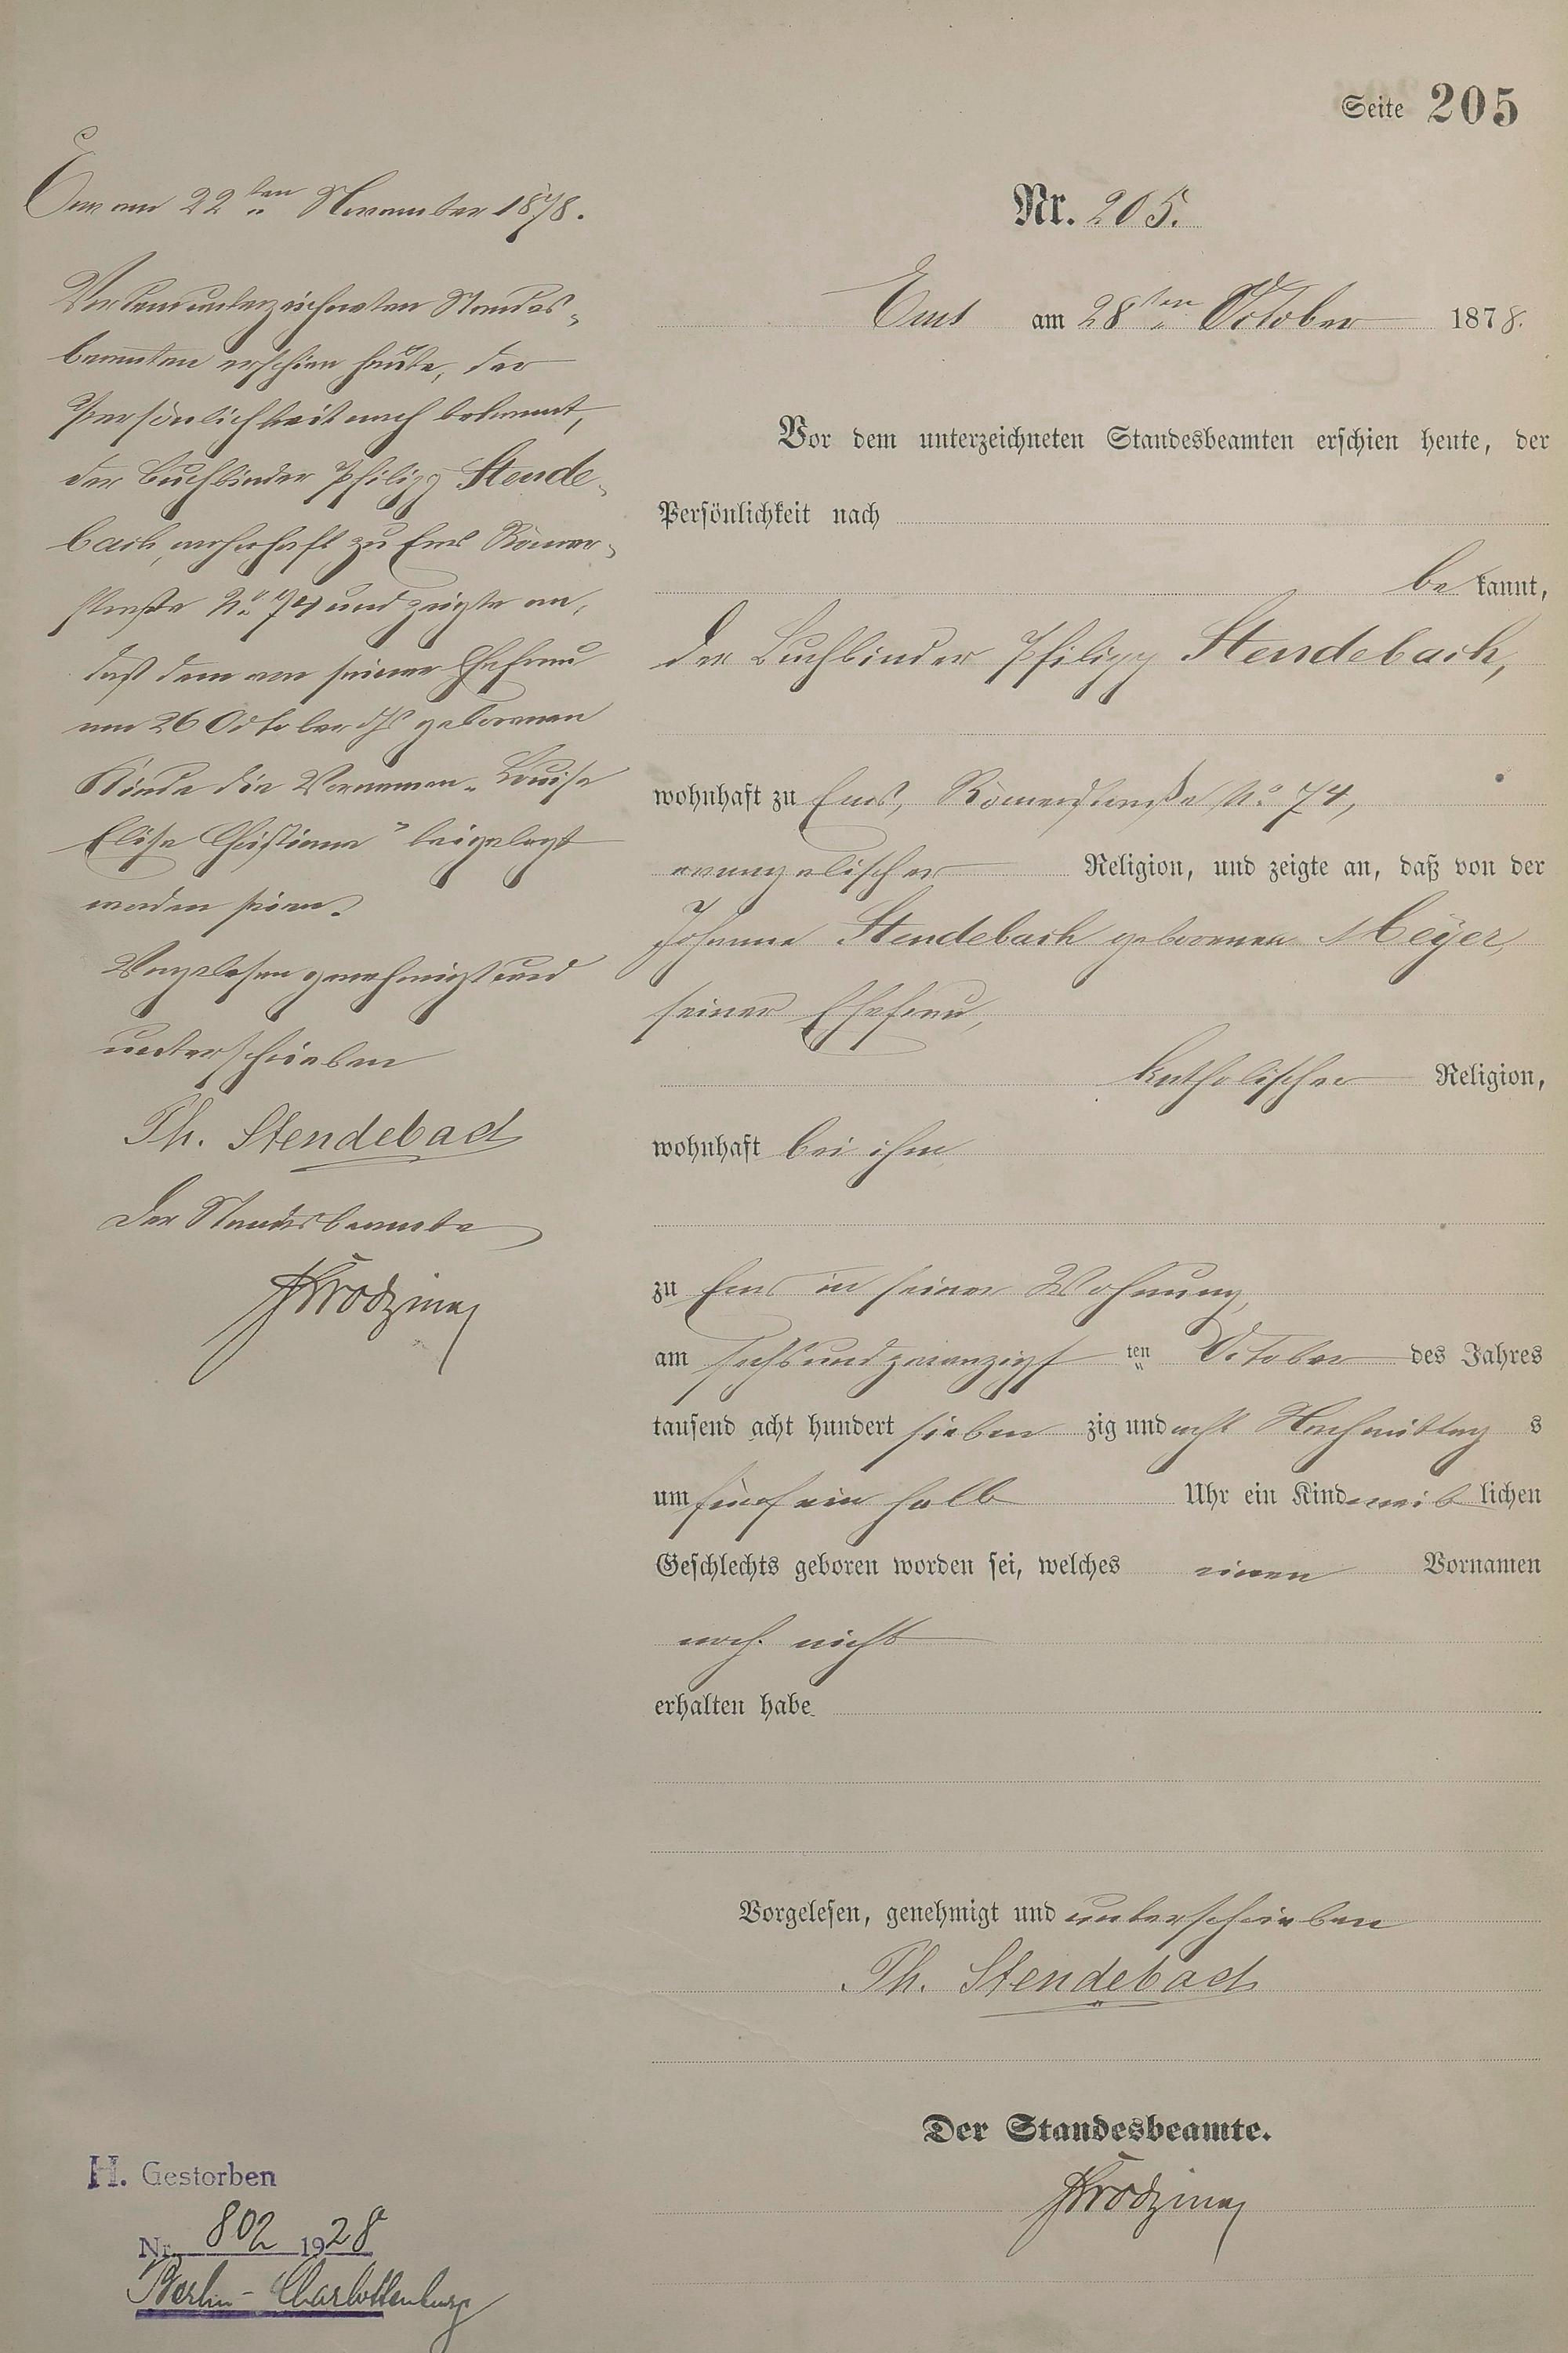 Seite 205
Nr. 205.
Ems am 28ten October 1878.
Vor dem unterzeichneten Standesbeamten erschien heute, der
Persönlichkeit nach
be kannt,
der Buchbinder Philipp Stendebach,
wohnhaft zu Ems, Römerstraße No 74,
evangelischer Religion, und zeigte an, daß von der
Johanna Stendebach geborenen Meÿer,
seiner Ehefrau,
katholischer Religion,
wohnhaft bei ihm
zu Ems in seiner Wohnung,
am sechsundzwanzigsten October des Jahres
tausend acht hundert sieben zig und acht Nachmittag s
um fünf ein halb Uhr ein Kind weib lichen
Geschlechts geboren worden sei, welches einen Vornamen
noch nicht
erhalten habe
Vorgelesen, genehmigt und unterschrieben
Ph. Stendebach
Der Standesbeamte.
Ems am 22ten November 1878.
Vor dem unterzeichneten Standes-
beamten erschien heute, der
Persönlichkeit nach bekannt,
der Buchbinder Philipp Stende-
bach, wohnhaft zu Ems Römer-
straße No 74 und zeigte an,
daß dem von seiner Ehefrau
am 26 October d/Js geborenen
Kinde die Vornamen „Louise
Elise Christiana" beigelegt
worden seien.
Vorgelesen genehmigt und
unterschrieben
Ph. Stendebach
Der Standesbeamte
H. Gestorben
Nr. 802 1928
Berlin-Charlottenburg